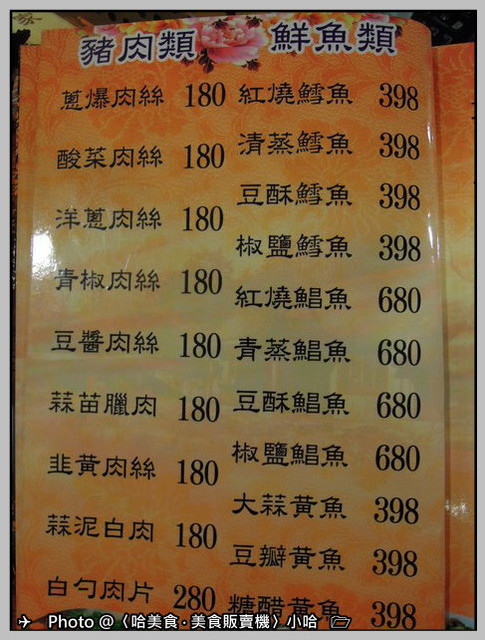 豬肉類
蔥爆肉絲 180
酸菜肉絲 180
洋蔥肉絲 180
青椒肉絲 180
豆醬肉絲 180
蒜苗臘肉 180
韭黃肉絲 180
蒜泥白肉 180
白勺肉片 280
鮮魚類
紅燒鱈魚 398
清蒸鱈魚 398
豆酥鱈魚 398
椒鹽鱈魚 398
紅燒鯧魚 680
青蒸鯧魚 680
豆酥鯧魚 680
椒鹽鯧魚 680
大蒜黃魚 398
豆瓣黃魚 398
糖醋黃魚 398
Photo @〈哈美食·美食販賣機〉小哈